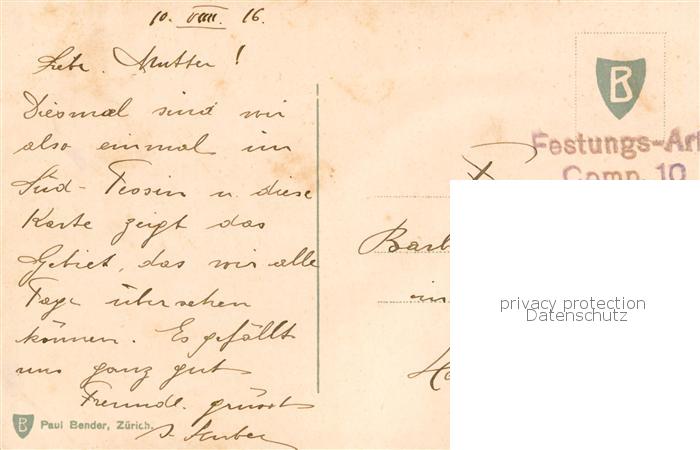 10. VIII. 16.
Liebe Mutter!
Diesmal sind wir
also einmal im
Süd-Tessin u. diese
Karte zeigt das
Gebiet, das wir alle
Tage übersehen
können. Es gefällt
uns ganz gut
Freundl. grüsst
B
Paul Bender, Zürich.
B
Festungs-Art
Comp. 10
F
Barb
in
privacy protection
Datenschutz